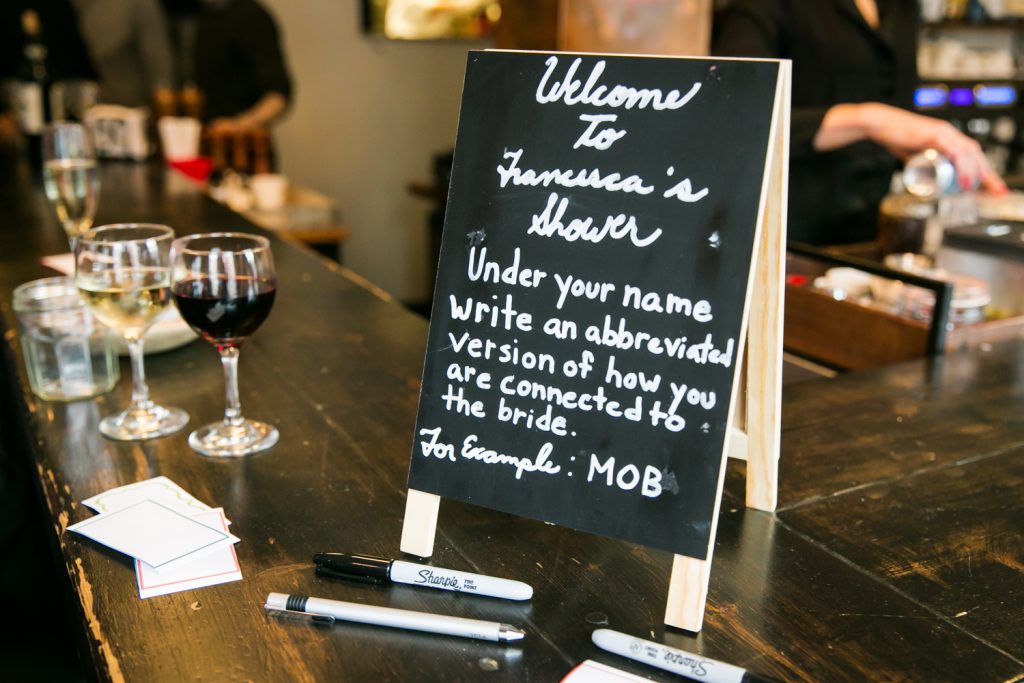 Welcome
To
Francesca's
Shower
Under your name
write an abbreviated
version of how you
are connected to
the bride.
For Example: MOB
Sharpie. FINE
POINT
Sharpie